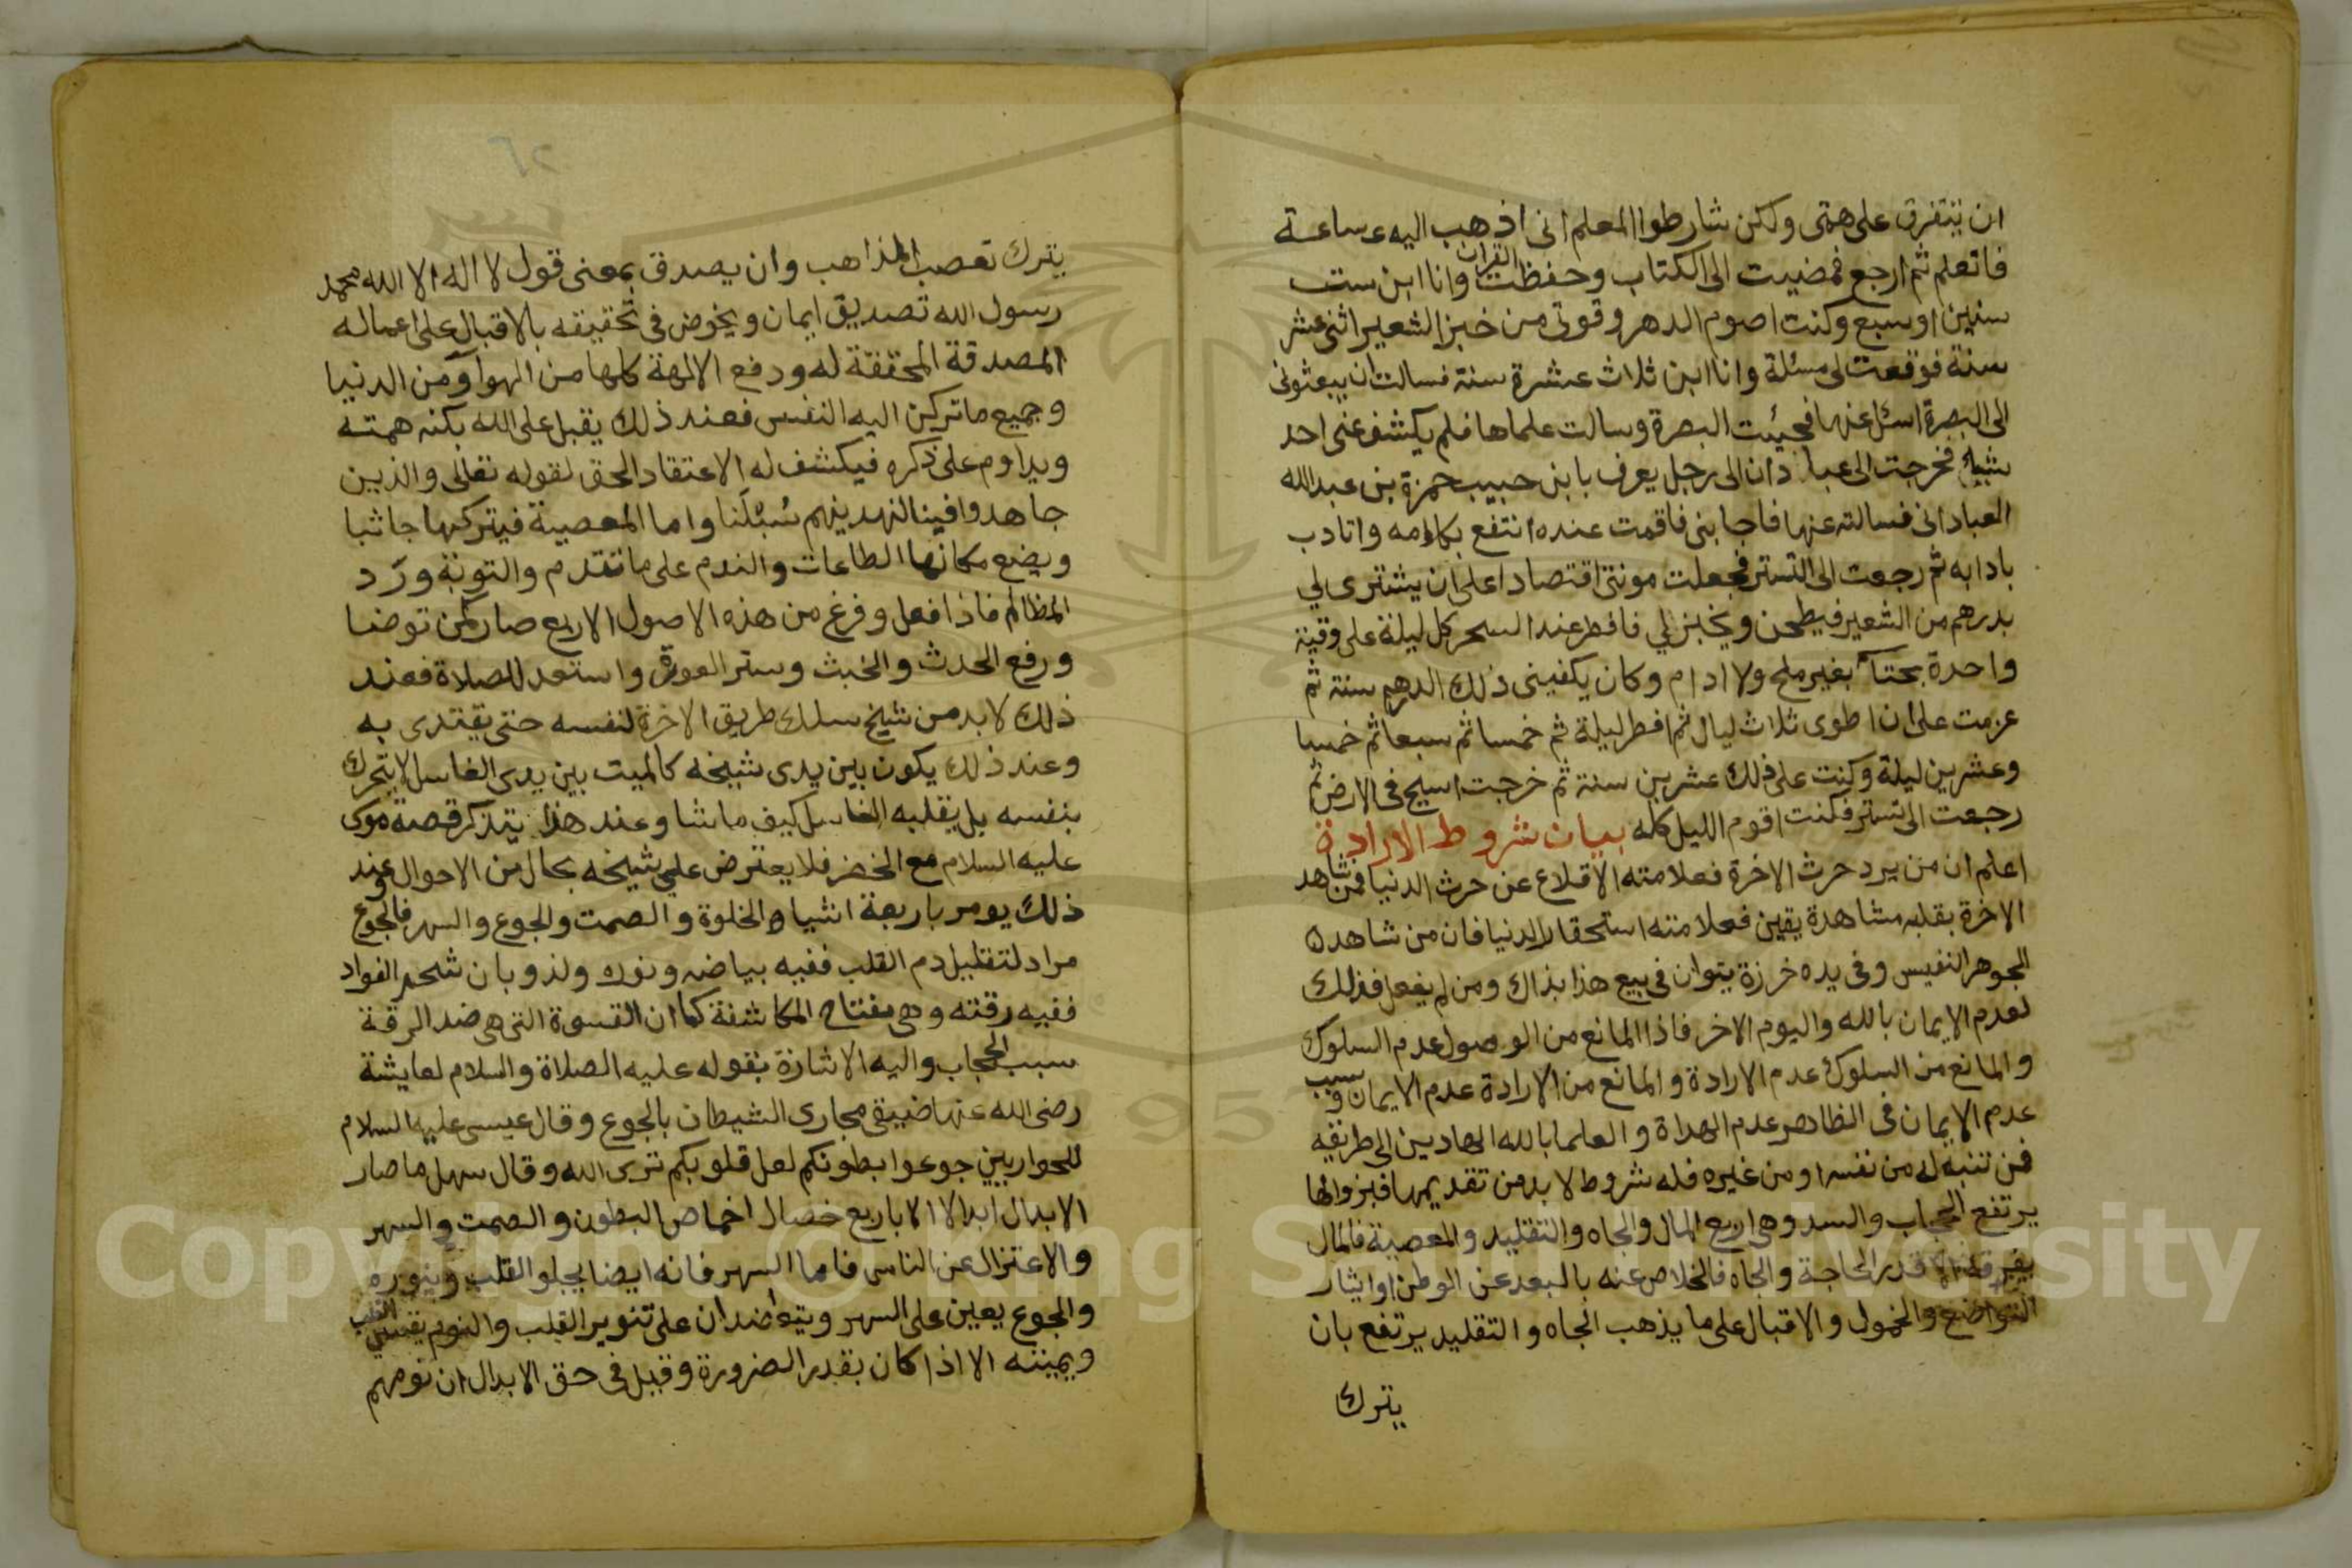 ان يتفرق على همتى ولكن شارطوا المعلم انى اذهب اليه ساعة
فاتعلم ثم ارجع فمضيت الى الكتاب وحفظت القران وانا ابن ست
سنين او سبع وكنت اصوم الدهر وقوتى من خبز الشعير اثنى عشر
سنة فوقعت لى مسئلة وانا ابن ثلاث عشرة سنة فسالت ان يبعثونى
الى البصرة اسئل عنها فجيئت البصرة وسالت علماها فلم يكشف عنى احد
شيئا فخرجت الى عبادان الى رجل يعرف بابن حبيب حمزة بن عبدالله
العبادانى فسالته عنها فاجابنى فاقمت عنده انتفع بكلامه واتادب
بادابه ثم رجعت الى التستر فجعلت مونتى اقتصادا على ان يشترى لي
بدرهم من الشعير فيطحن ويخبز لي فافطر عند السحر كل ليلة على وقية
واحدة بحتا بغير ملح ولا ادام وكان يكفينى ذلك الدرهم سنة ثم
عزمت على ان اطوى ثلاث ليال ثم افطر ليلة ثم خمسا ثم سبعا ثم خمسا
وعشرين ليلة وكنت على ذلك عشرين سنة ثم خرجت اسيح فى الارض ثم
رجعت الى تستر فكنت اقوم الليل كله بيان شروط الارادة
اعلم ان من يرد حرث الاخرة فعلامته الاقلاع عن حرث الدنيا فمن شاهد
الاخرة بقلبه مشاهدة يقين فعلامته استحقار الدنيا فان من شاهد
الجوهر النفيس وفى يده خرزة يتوان فى بيع هذا بذاك ومن لم يفعل فذلك
لعدم الايمان بالله واليوم الاخر فاذا المانع من الوصول عدم السلوك
والمانع من السلوك عدم الارادة والمانع من الارادة عدم الايمان وسبب
عدم الايمان فى الظاهر عدم الهداة والعلما بالله الهادين الى طريقه
فمن تنبه له من نفسه او من غيره فله شروط لابد من تقديمها فبزوالها
يرتفع الحجاب والسد وهى اربع المال والجاه والتقليد والمعصية فالمال
قدر الحاجة والجاه فالخلاص عنه بالبعد عن الوطن او ايثار
التواضع والخمول والاقبال على ما يذهب الجاه والتقليد يرتفع بان
يترك
٦٢
يترك تعصب المذاهب وان يصدق بمعنى قول لا اله الا الله محمد
رسول الله تصديق ايمان ويخوض فى تحقيقه بالاقبال على اعماله
المصدقة المحققة له ودفع الالهة كلها من الهوا ومن الدنيا
وجميع ما تركن اليه النفس فعند ذلك يقبل على الله بكنه همته
ويداوم على ذكره فيكشف له الاعتقاد الحق لقوله تعالى والذين
جاهدوا فينا لنهدينهم سُبُلَنا واما المعصية فيتركها جانبا
ويضع مكانها الطاعات والندم على ما تقدم والتوبة وردّ
المظالم فاذا فعل وفرغ من هذه الاصول الاربع صار كمن توضا
ورفع الحدث والخبث وستر العورة واستعد للصلاة فعند
ذلك لابد من شيخ سلك طريق الاخرة لنفسه حتى يقتدى به
وعند ذلك يكون بين يدى شيخه كالميت بين يدى الغاسل لا يتحرك
بنفسه بل يقلبه الغاسل كيف ما شا وعند هذا يتذكر قصة موسى
عليه السلام مع الخضر فلا يعترض علي شيخه بحال من الاحوال وعند
ذلك يومر باربعة اشياء الخلوة والصمت والجوع والسهر فالجوع
مراد لتقليل دم القلب ففيه بياضه ونوره ولذوبان شحم الفواد
ففيه رقته وهى مفتاح المكاشفة كما ان القسوة التى هى ضد الرقة
سبب الحجاب واليه الاشارة بقوله عليه الصلاة والسلام لعايشة
رضى الله عنها ضيقى مجارى الشيطان بالجوع وقال عيسى عليه السلام
للحواريين جوعوا بطونكم لعل قلوبكم ترى الله وقال سهل ما صار
الابدال ابدالا الا باربع خصال اخماص البطون والصمت والسهر
والاعتزال عن الناس فاما السهر فانه ايضا يجلو القلب وينوره
والجوع يعين على السهر ويتعاضدان على تنوير القلب والنوم يقسي القلب
ويميته الا اذا كان بقدر الضرورة وقيل فى حق الابدال ان نومهم